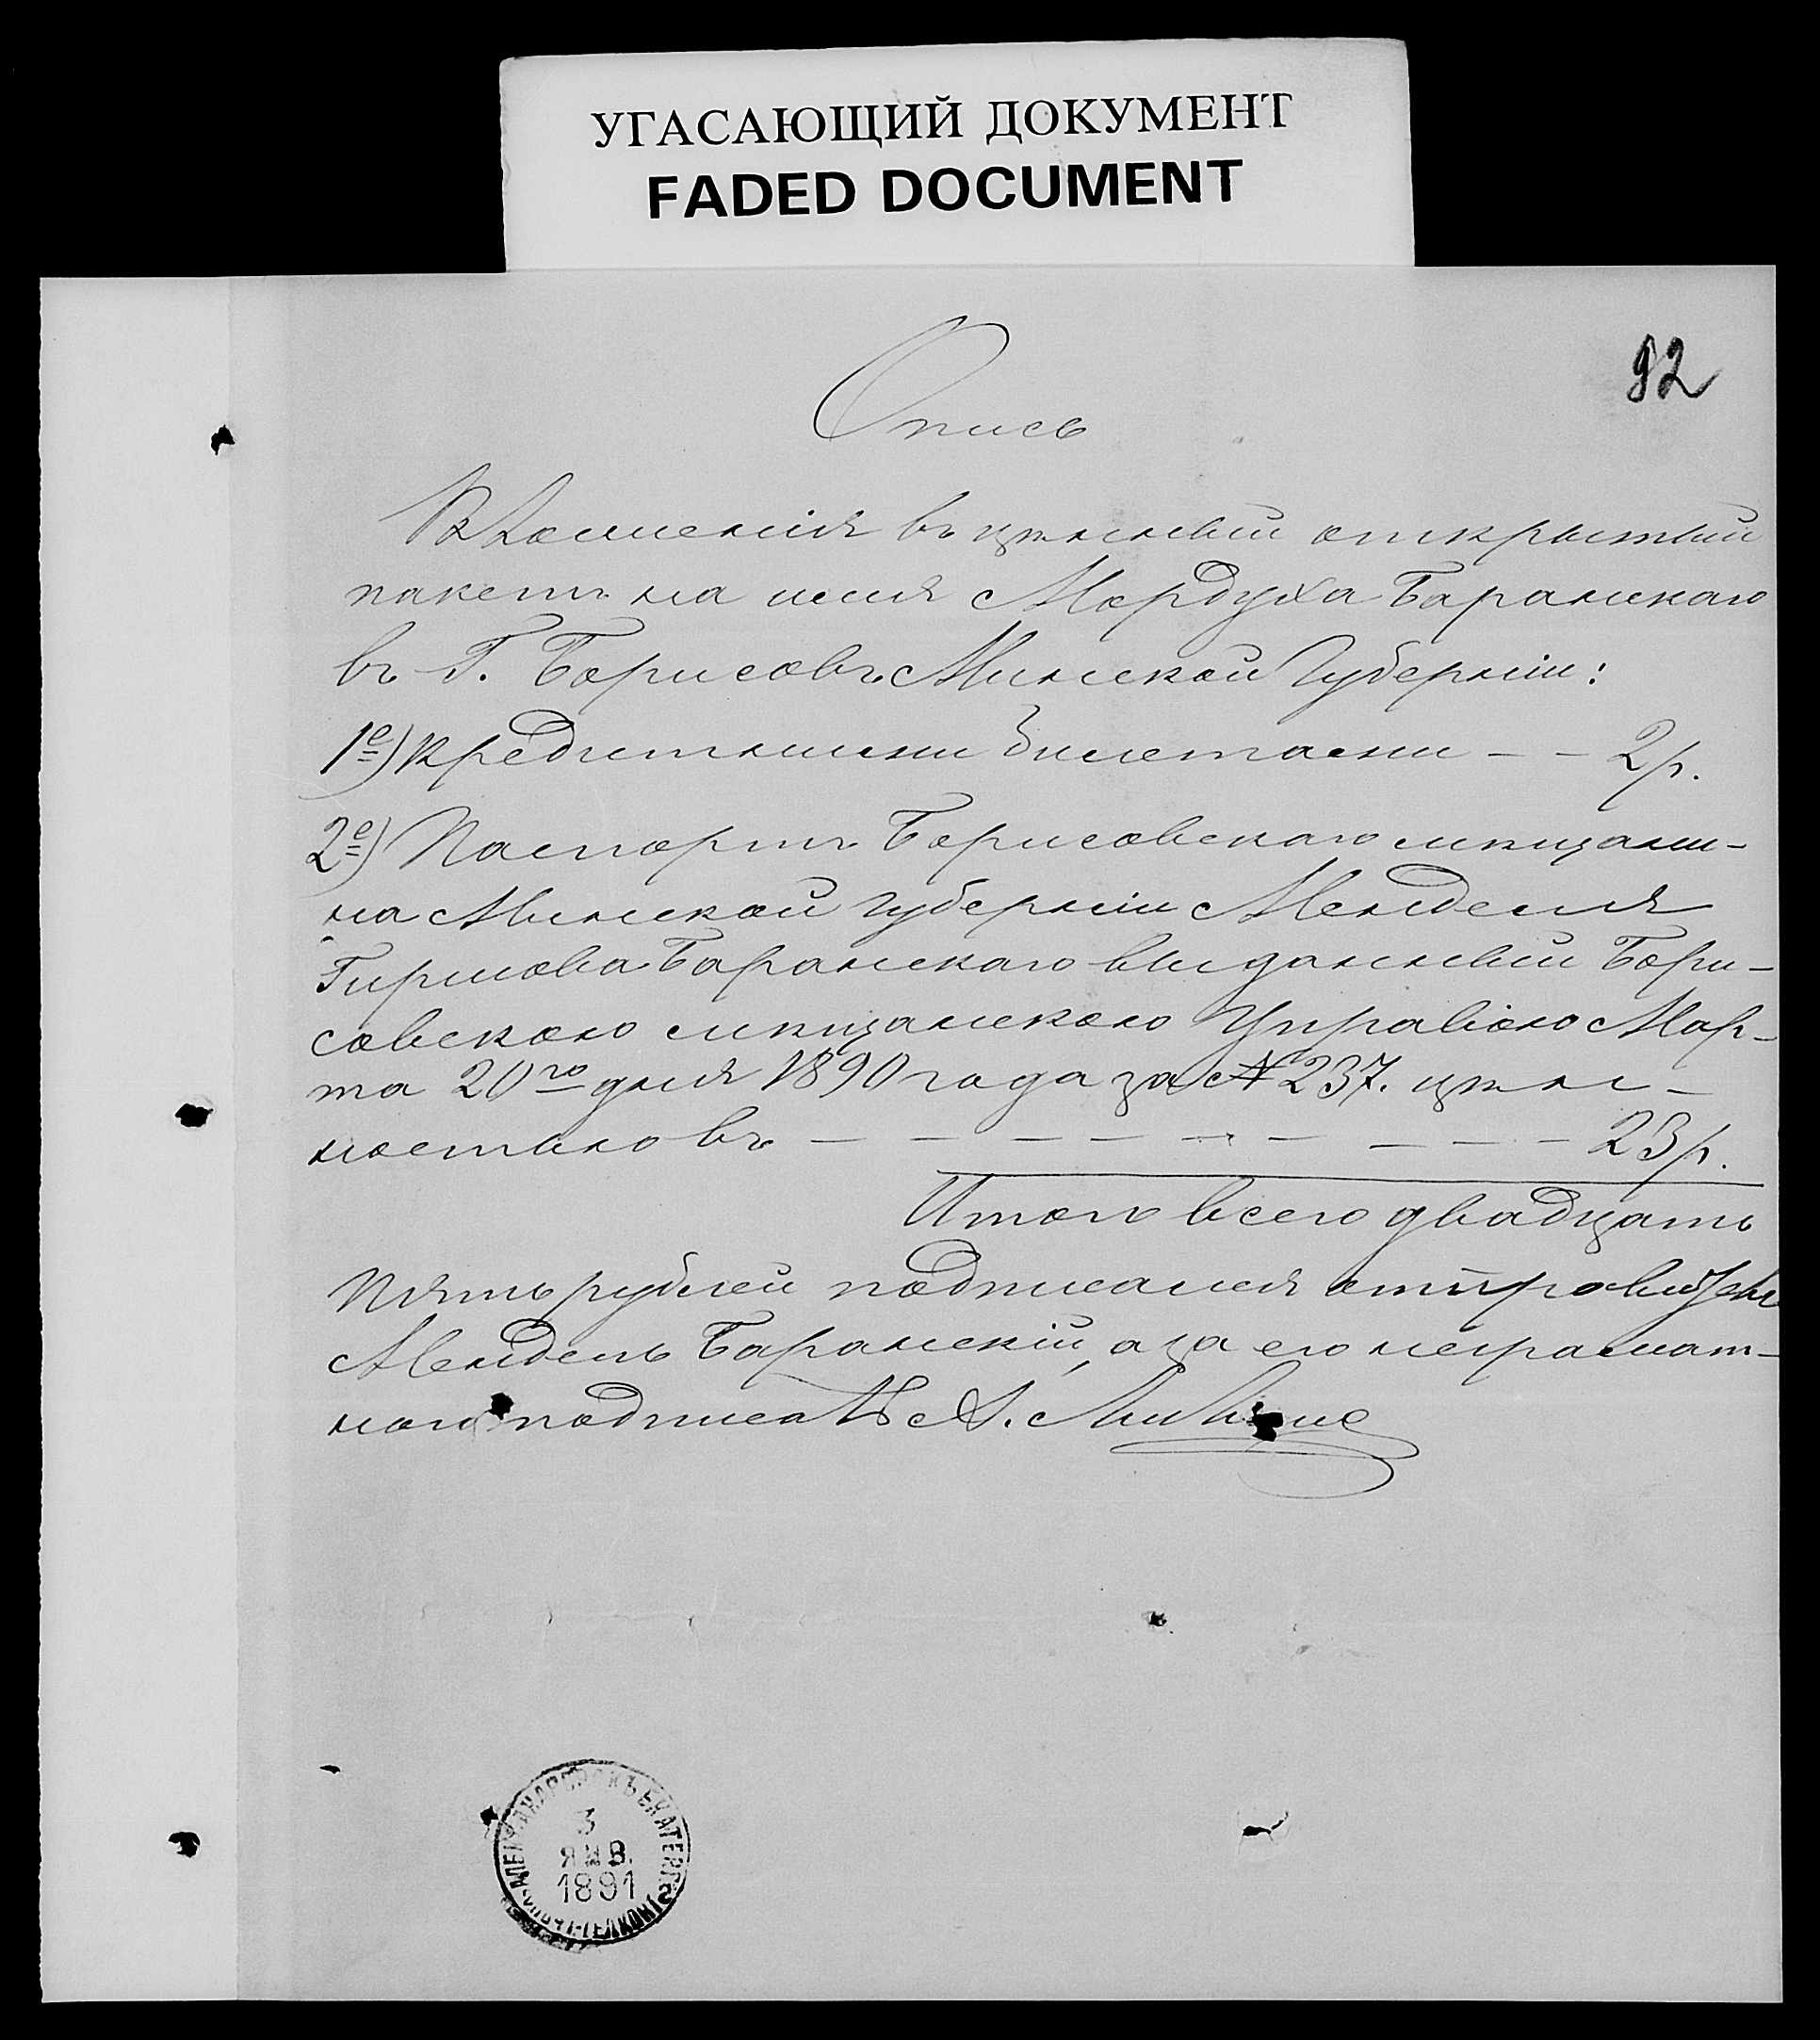 УГАСАЮЩИЙ ДОКУМЕНТ
FADED DOCUMENT
92
Опись
Вложения въ цѣнный открытый
пакетъ на имя Мордуха Баранскаго
въ Г. Борисовъ Минской Губерніи:
1е) Кредитными билетами - - 2 р.
2е) Паспортъ Борисовскаго мѣщани-
на Минской губерніи Менделя
Гиршова Баранскаго выданный Бори-
совскою мѣщанскою Управою Мар-
та 20го дня 1890 года за № 237. цѣн-
ностью въ - - - - - - - - - 23 р.
Итого всего двадцать
пять рублей подписался
Мендель Баранскій, а за его неграмот-
ного подписалъ А.
3
ЯНВ.
1891